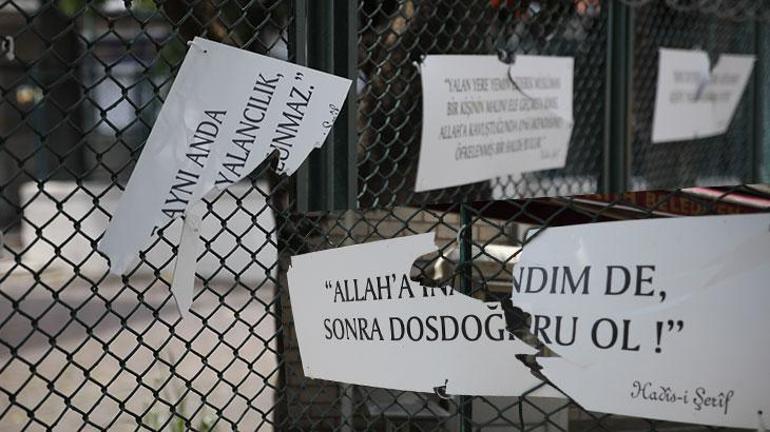 AYNI ANDA
YALANCILIK,
UNMAZ."
"YALAN YERE YEMİN EDEREK MÜSLÜMAN
BİR KİŞİNİN MALINI ELE GEÇİREN KİMSE,
ALLAH'A KAVUŞTUĞUNDA
ÖFKELENMİŞ BİR HALDE BULUR."
"ALLAH'A İNA NDIM DE,
SONRA DOSDOĞ RU OL !"
Hadîs-i Şerîf